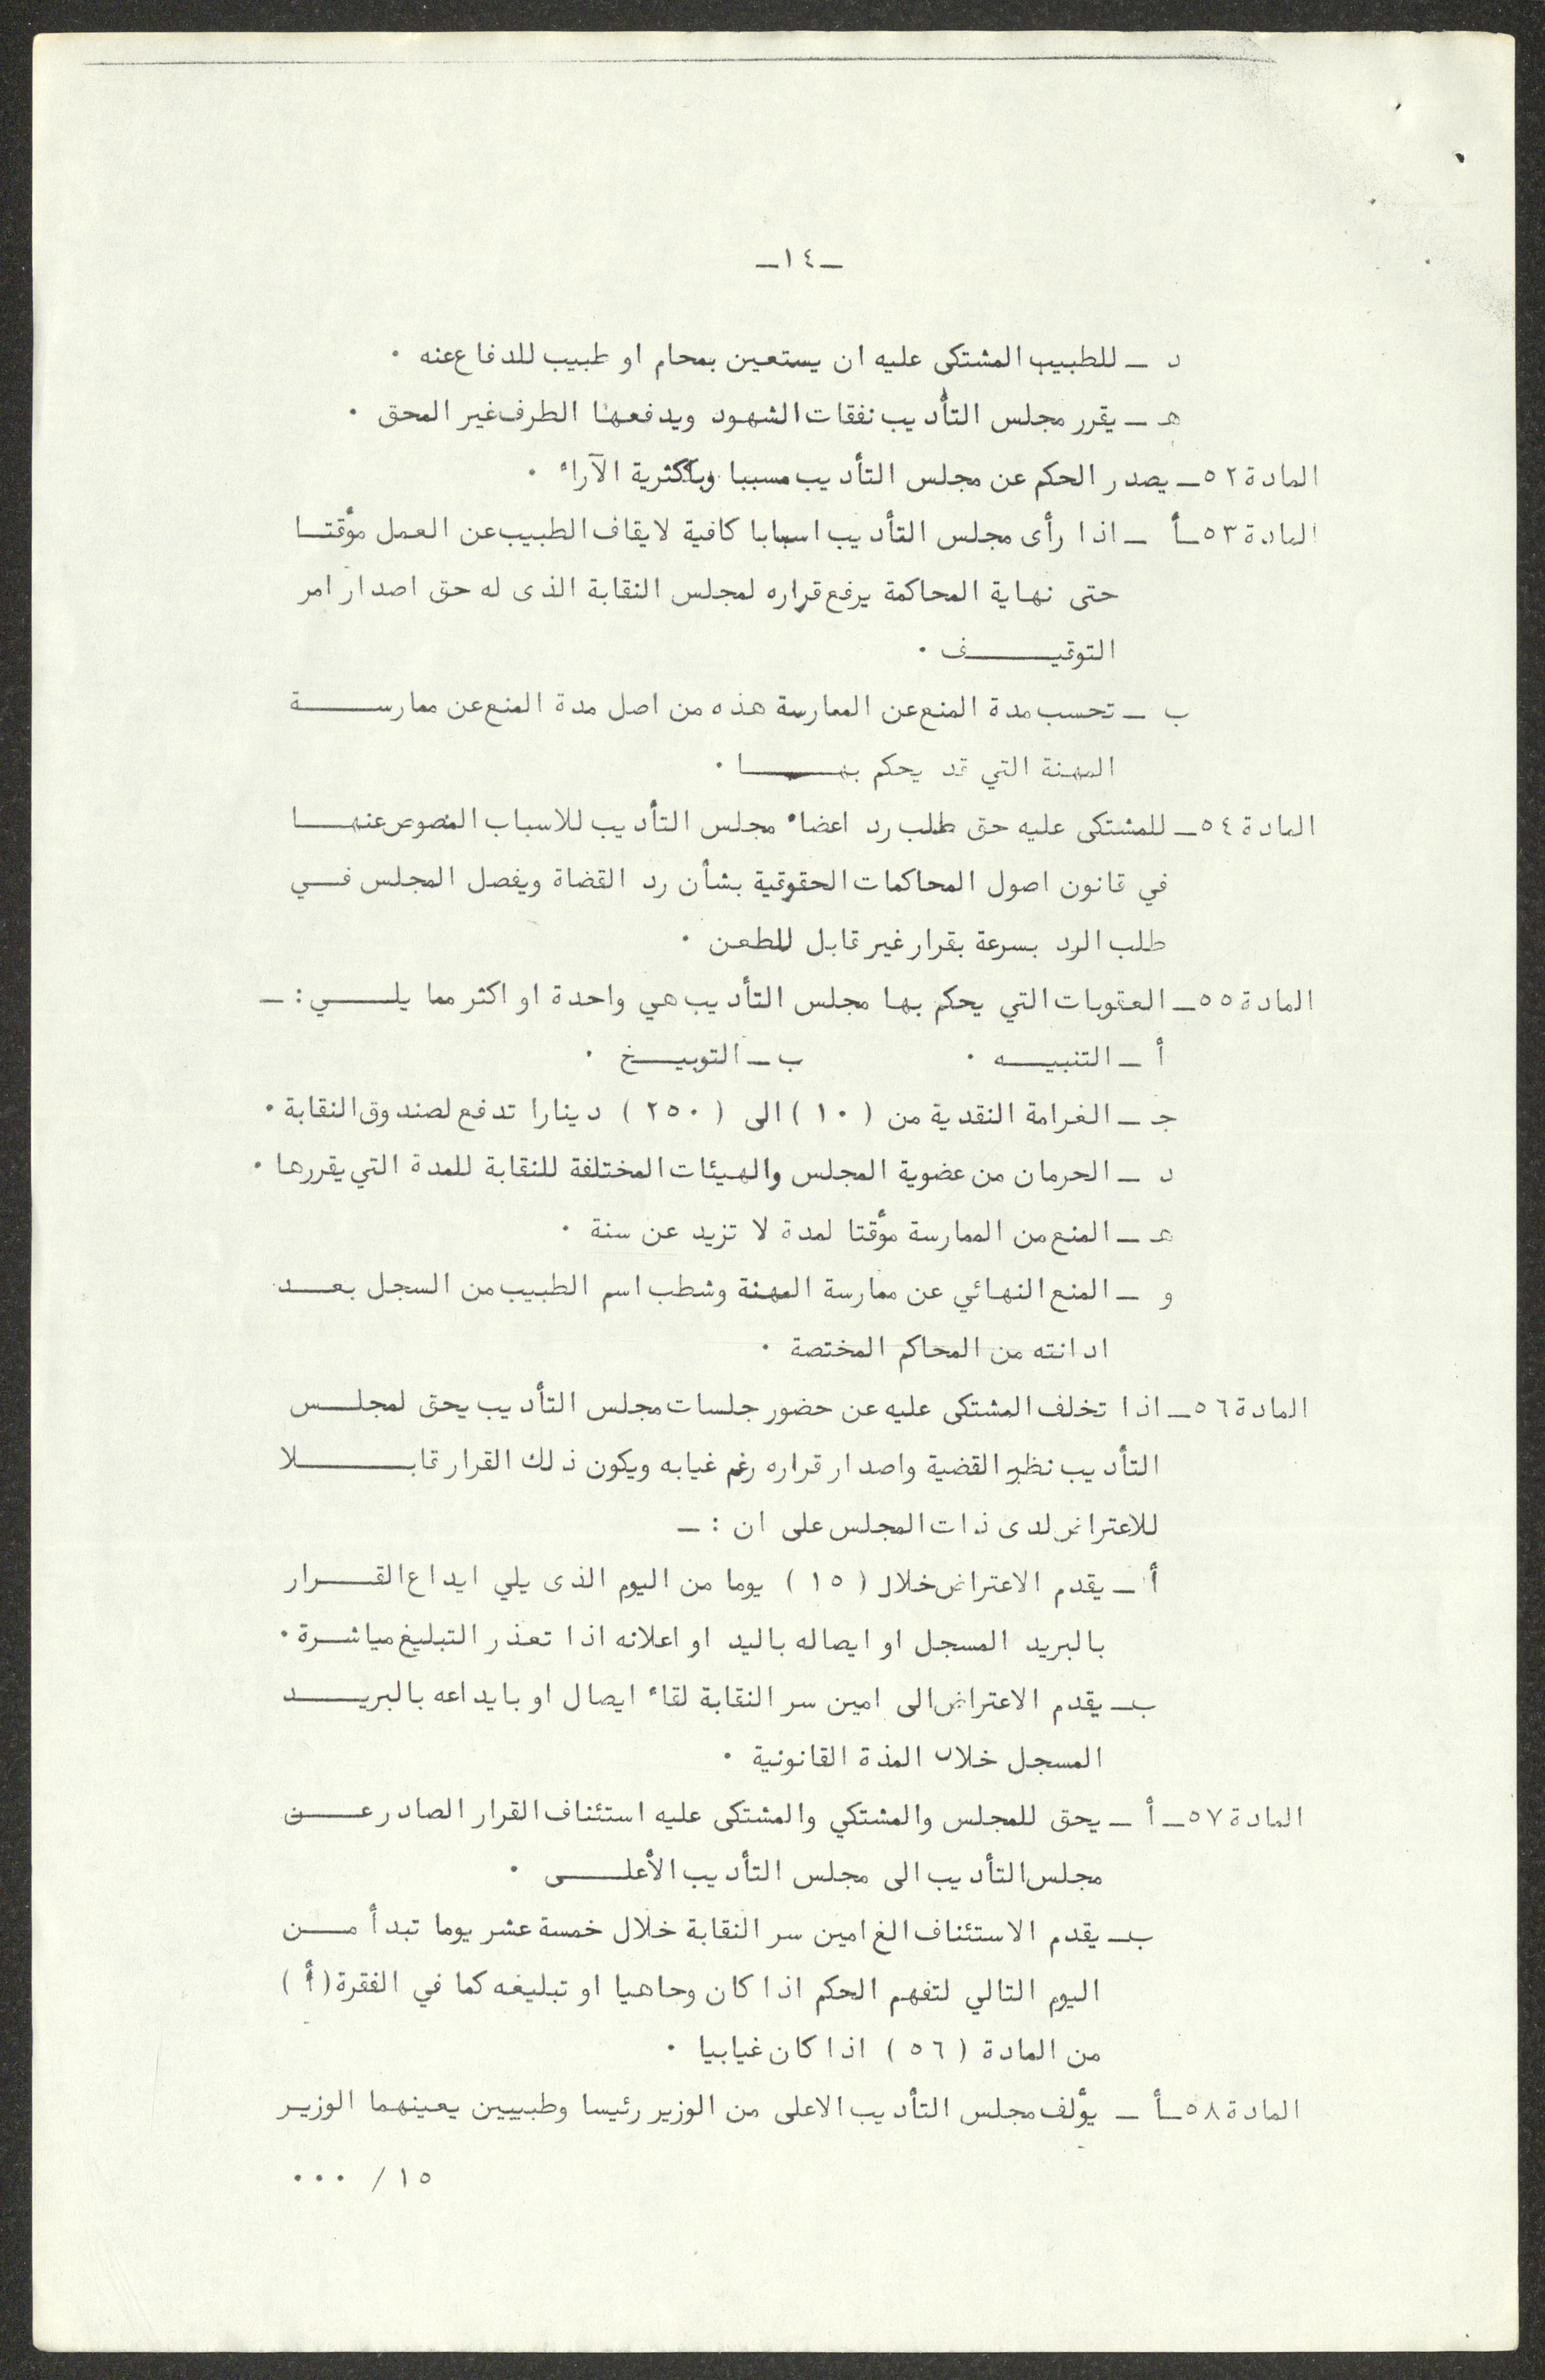 ـ١٤ـ
د ـ للطبيب المشتكى عليه ان يستعين بمحام او طبيب للدفاع عنه ٠
هـ ـ يقرر مجلس التأديب نفقات الشهود ويدفعها الطرف غير المحق ٠
المادة ٥٢ـ يصدر الحكم عن مجلس التأديب مسببا وباكثرية الآراء ٠
المادة ٥٣ـأ ـ اذا رأى مجلس التأديب اسبابا كافية لايقاف الطبيب عن العمل مؤقتــا
حتى نهاية المحاكمة يرفع قراره لمجلس النقابة الذى له حق اصدار امر
التوقيــــــف ٠
ب ـ تحسب مدة المنع عن الممارسة هذه من اصل مدة المنع عن ممارســــــة
المهنة التي قد يحكم بهــــــا ٠
المادة ٥٤ـ للمشتكى عليه حق طلب رد اعضاء مجلس التأديب للاسباب المنصوص عنهــــا
في قانون اصول المحاكمات الحقوقية بشأن رد القضاة ويفصل المجلس فــي
طلب الرد بسرعة بقرار غير قابل للطعن ٠
المادة ٥٥ـ العقوبات التي يحكم بها مجلس التأديب هي واحدة او اكثر مما يلــــي : ـ
أ ـ التنبيـــه ٠ ب ـ التوبيــخ ٠
جـ ـ الغرامة النقدية من ( ١٠ ) الى ( ٢٥٠ ) دينارا تدفع لصندوق النقابة ٠
د ـ الحرمان من عضوية المجلس والهيئات المختلفة للنقابة للمدة التي يقررها ٠
هـ ـ المنع من الممارسة مؤقتا لمدة لا تزيد عن سنة ٠
و ـ المنع النهائي عن ممارسة المهنة وشطب اسم الطبيب من السجل بعــد
ادانته من المحاكم المختصة ٠
المادة ٥٦ـ اذا تخلف المشتكى عليه عن حضور جلسات مجلس التأديب يحق لمجلــس
التأديب نظر القضية واصدار قراره رغم غيابه ويكون ذلك القرار قابــــــلا
للاعتراض لدى ذات المجلس على ان : ـ
أ ـ يقدم الاعتراض خلال ( ١٥ ) يوما من اليوم الذى يلي ايداع القـــرار
بالبريد المسجل او ايصاله باليد او اعلانه اذا تعذر التبليغ مباشــرة ٠
بـ ـ يقدم الاعتراض الى امين سر النقابة لقاء ايصال او بايداعه بالبريــــد
المسجل خلال المذة القانونية ٠
المادة ٥٧ـ أ ـ يحق للمجلس والمشتكي والمشتكى عليه استئناف القرار الصادر عــــن
مجلس التأديب الى مجلس التأديب الأعلــــى ٠
بـ ـ يقدم الاستئناف الغ امين سر النقابة خلال خمسة عشر يوما تبدأ مــــن
اليوم التالي لتفهم الحكم اذا كان وحاهيا او تبليغه كما في الفقرة ( أ )
من المادة ( ٥٦ ) اذا كان غيابيا ٠
المادة ٥٨ـأ ـ يؤلف مجلس التأديب الاعلى من الوزير رئيسا وطبيبين يعينهما الوزيــر
١٥ / ٠٠٠